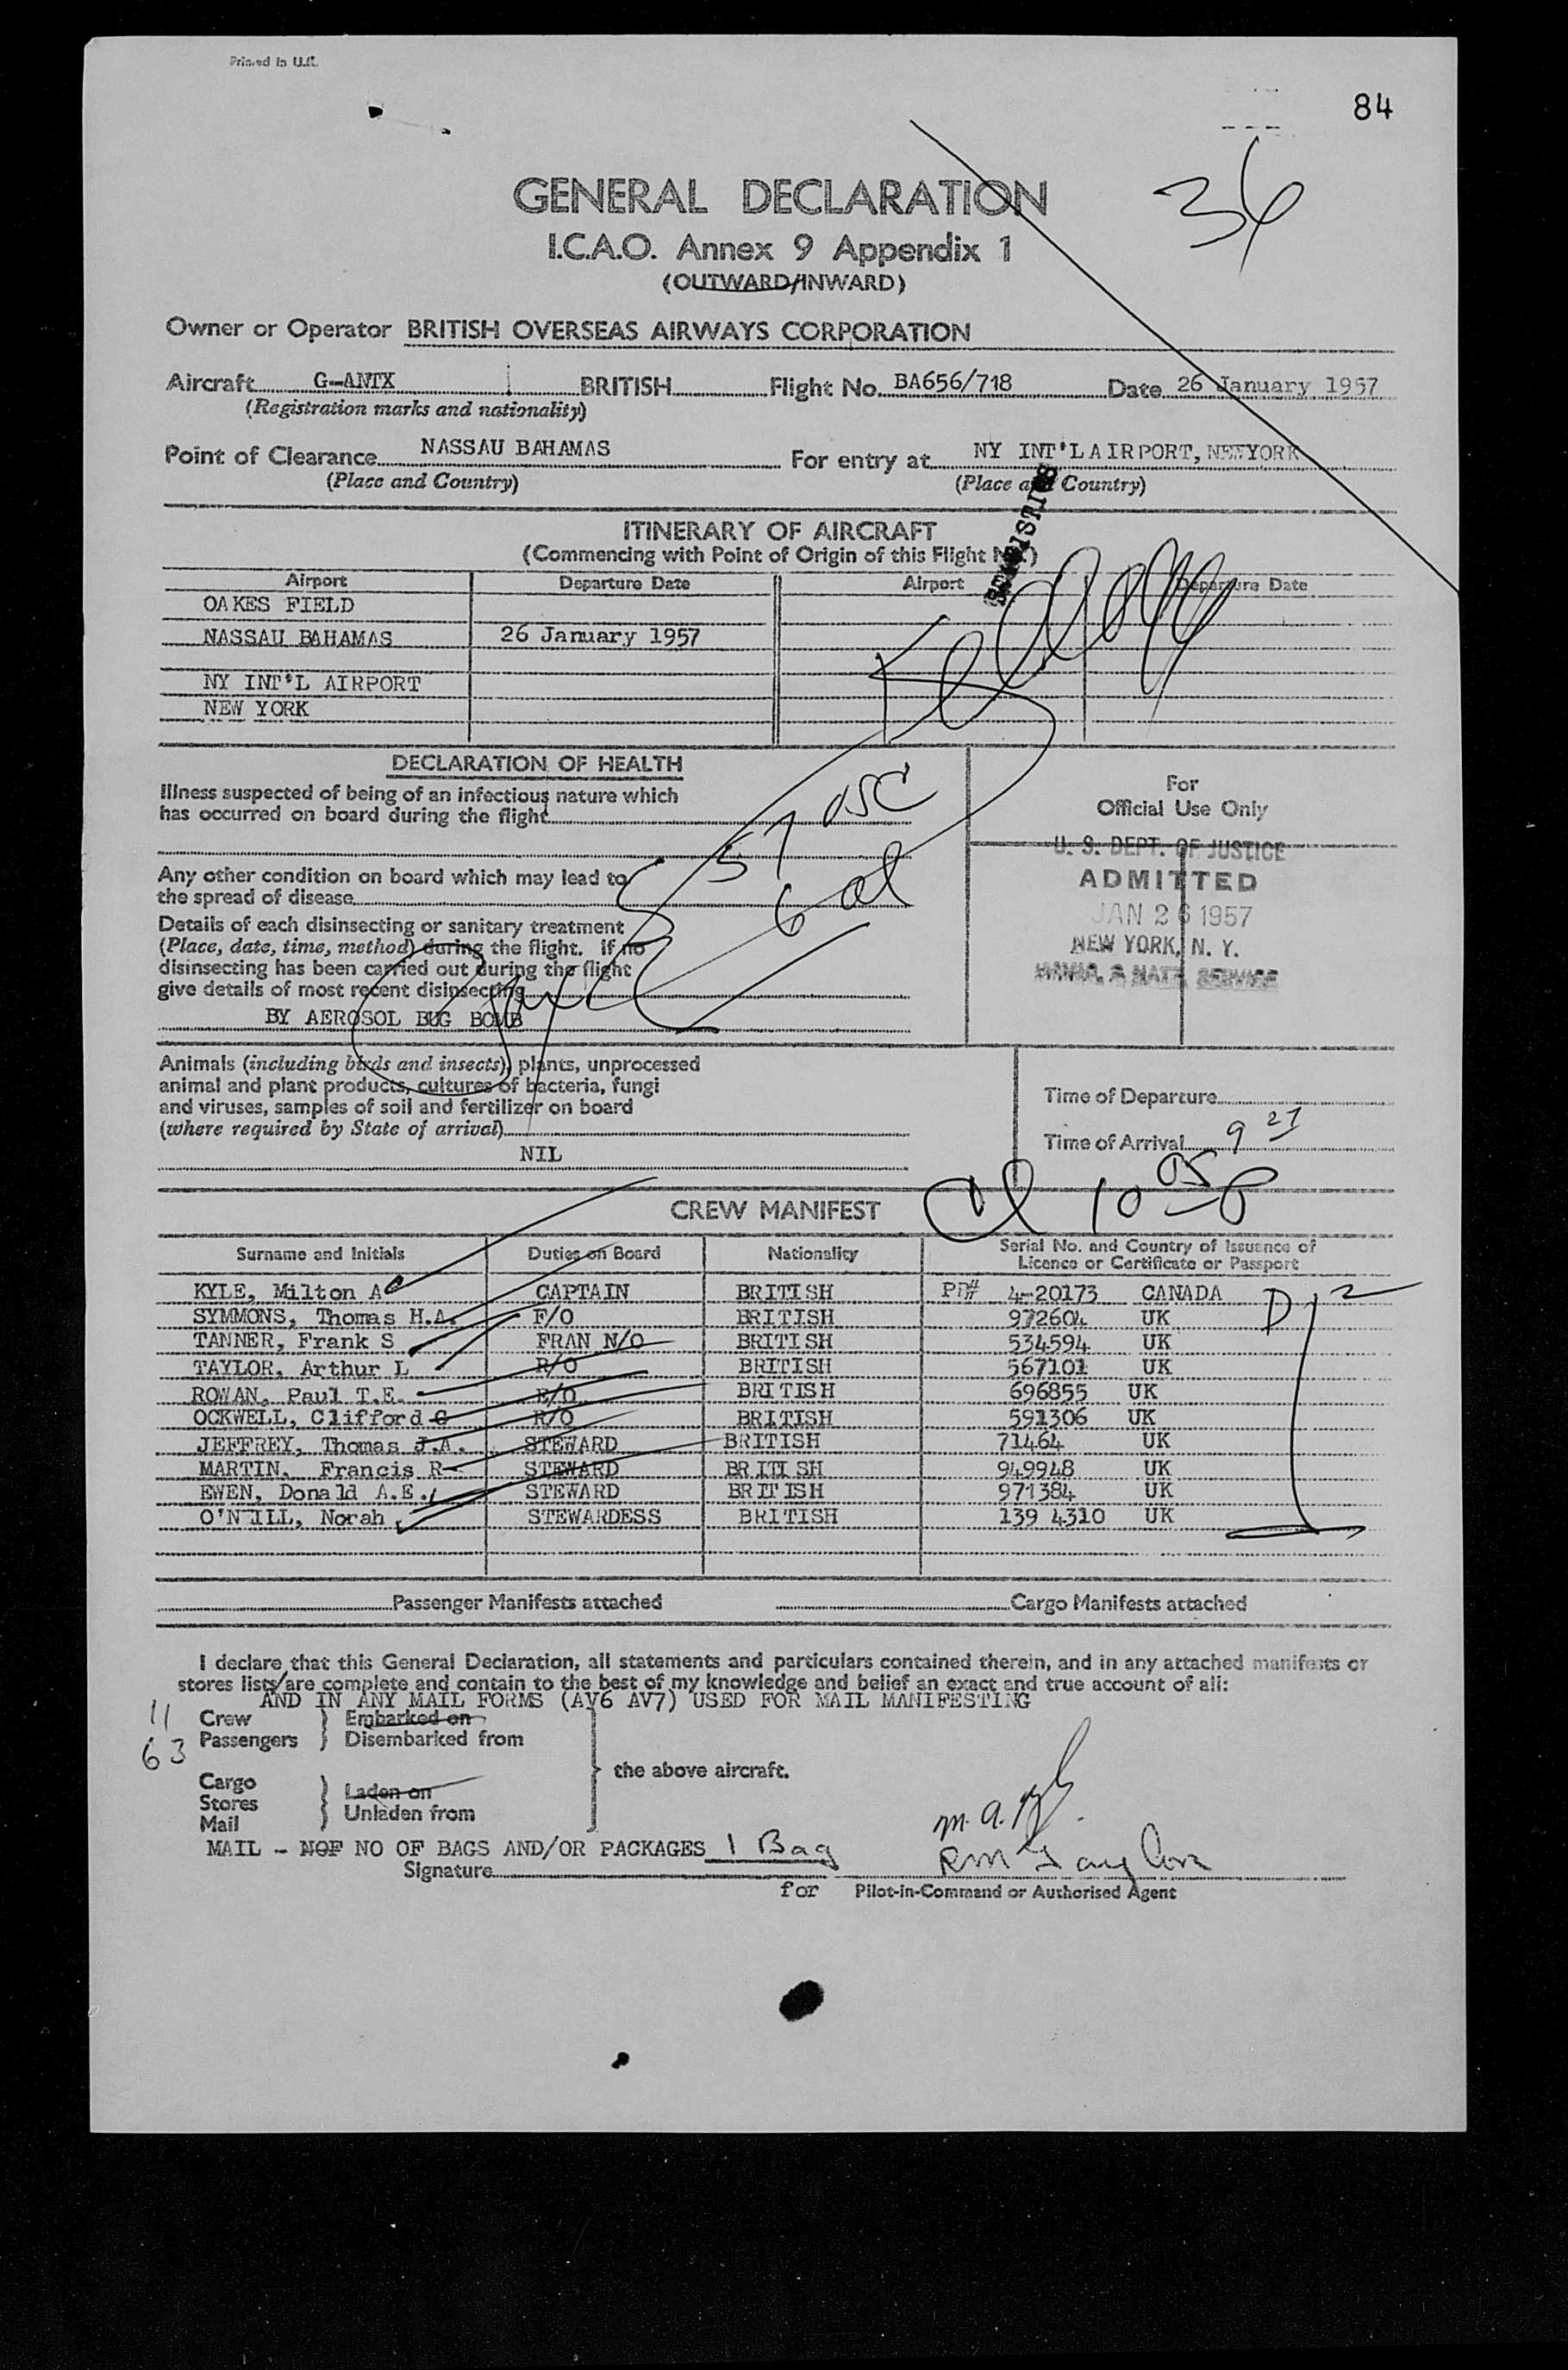 Printed in U.K.
84
36
GENERAL DECLARATION
I.C.A.O. Annex 9 Appendix 1
(OUTWARD/INWARD)
Owner or Operator BRITISH OVERSEAS AIRWAYS CORPORATION
Aircraft G-ANTX BRITISH Flight No. BA656/718 Date 26 January 1957
(Registration marks and nationality)
Point of Clearance NASSAU BAHAMAS For entry at NY INT'L AIRPORT, NEWYORK
(Place and Country) (Place and Country)
STATISTICS
ITINERARY OF AIRCRAFT
(Commencing with Point of Origin of this Flight No.)
Airport Departure Date Airport Departure Date
OAKES FIELD
NASSAU BAHAMAS 26 January 1957
NY INT'L AIRPORT
NEW YORK
DECLARATION OF HEALTH
Illness suspected of being of an infectious nature which
has occurred on board during the flight
Any other condition on board which may lead to
the spread of disease
Details of each disinsecting or sanitary treatment
(Place, date, time, method) during the flight. If no
disinsecting has been carried out during the flight
give details of most recent disinsecting
BY AEROSOL BUG BOMB
For
Official Use Only
U. S. DEPT. OF JUSTICE
ADMITTED
JAN 26 1957
NEW YORK, N. Y.
IMMIG. & NATZ. SERVICE
57 OSC
6 al
Animals (including birds and insects), plants, unprocessed
animal and plant products, cultures of bacteria, fungi
and viruses, samples of soil and fertilizer on board
(where required by State of arrival)
NIL
Time of Departure
Time of Arrival 9 27
Cl 10 05 P
CREW MANIFEST
Surname and Initials Duties on Board Nationality Serial No. and Country of Issuance of Licence or Certificate or Passport
KYLE, Milton A CAPTAIN BRITISH PP# 4-20173 CANADA
SYMMONS, Thomas H.A. F/O BRITISH 972604 UK
TANNER, Frank S FRAN N/O BRITISH 534594 UK
TAYLOR, Arthur L R/O BRITISH 567101 UK
ROWAN, Paul T.E. E/O BRITISH 696855 UK
OCKWELL, Clifford G R/O BRITISH 591306 UK
JEFFREY, Thomas J.A. STEWARD BRITISH 71464 UK
MARTIN, Francis R STEWARD BRITISH 949948 UK
EWEN, Donald A.E. STEWARD BRITISH 971384 UK
O'NEILL, Norah STEWARDESS BRITISH 139 4310 UK
D 2
Passenger Manifests attached Cargo Manifests attached
I declare that this General Declaration, all statements and particulars contained therein, and in any attached manifests or
stores lists/are complete and contain to the best of my knowledge and belief an exact and true account of all:
AND IN ANY MAIL FORMS (AV6 AV7) USED FOR MAIL MANIFESTING
11 Crew Embarked on
63 Passengers Disembarked from
the above aircraft.
Cargo
Stores Laden on
Mail Unladen from
MAIL - NOF NO OF BAGS AND/OR PACKAGES 1 Bag
Signature
M. A. Kyle
RM Taylor
for Pilot-in-Command or Authorised Agent